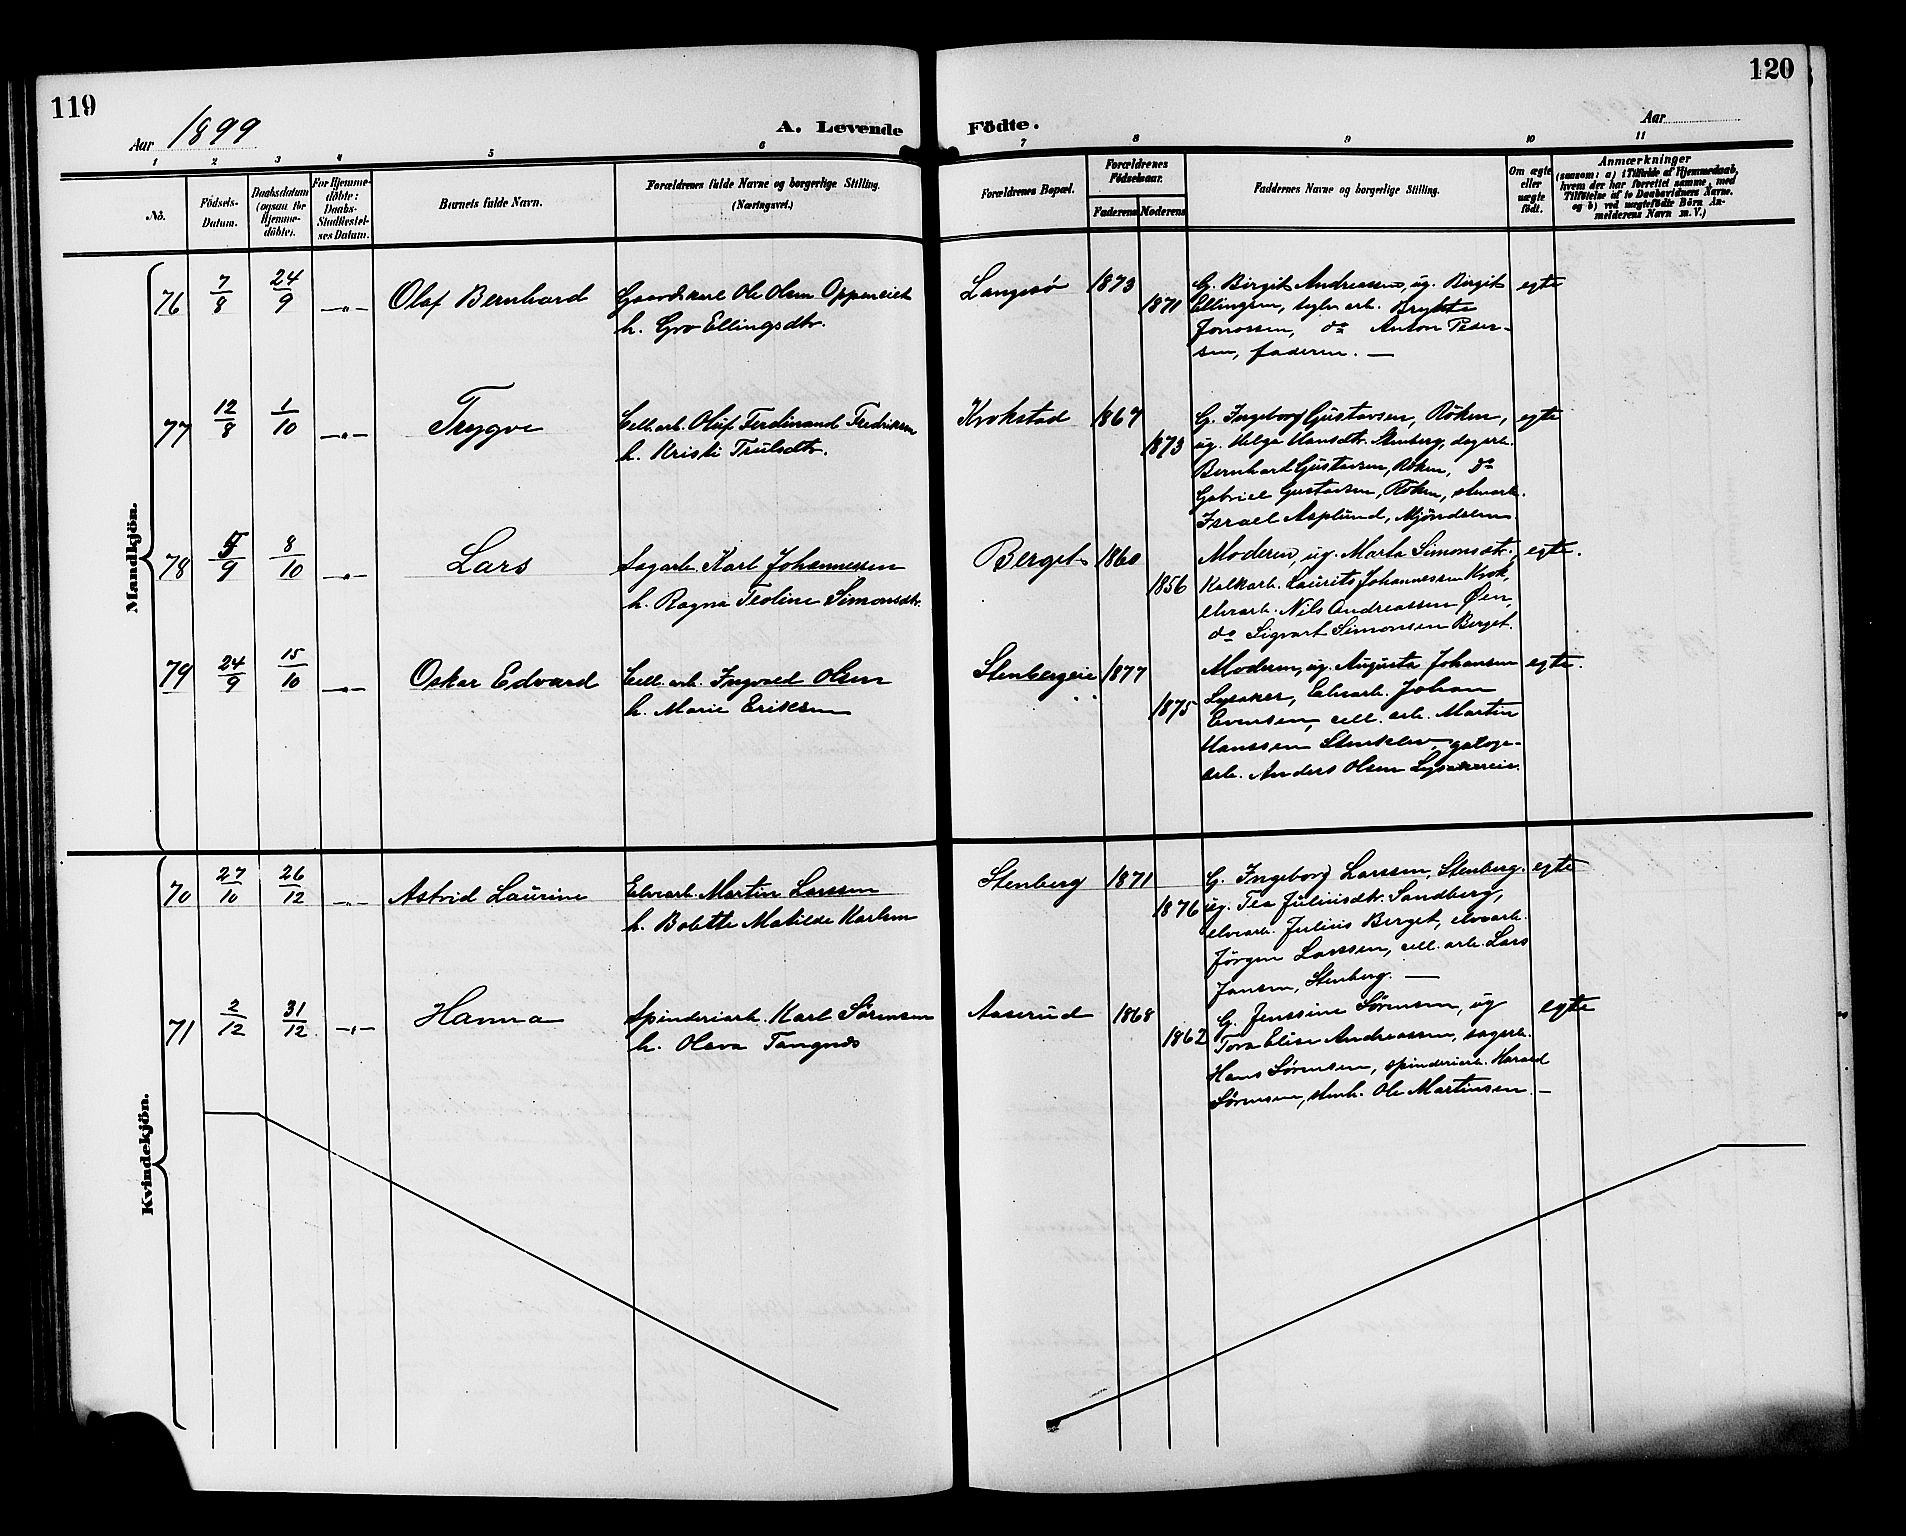 119
120
Aar 1899
A. Levende Födte.
Aar
1 2 3 4 5 6 7 8 9 10 11
No.
Födsels-Datum.
Daabsdatum (ogsaa for Hjemmedöbte).
For Hjemmedöbte: Daabs-Stadfæstelses Datum.
Barnets fulde Navn.
Forældrenes fulde Navne og borgerlige Stilling. (Næringsvei.)
Forældrenes Bopæl.
Forældrenes Födselsaar.
Faderens Moderens
Faddernes Navne og borgerlige Stilling.
Om ægte eller uægte födt.
Anmærkninger
(saasom: a) i Tilfælde af Hjemmedaab, hvem der har forrettet samme, med Tilföielse af to Daabsvidners Navne, og b) ved uægtefödte Börn Anmelderens Navn m. V.)
Mandkjön.
76 7/8 24/9 —„— Olaf Bernhard
Gaardskarl Ole Olsen Oppeneiet
h. Gro Ellingsdtr.
Langesö 1873 1871
G. Birgit Andreassen, ug. Birgit
Ellingsen, arb.
Jonassen, do Anton Peder-
sen, faderen. —
egte
77 12/8 1/10 —„— Trygve
Cell. arb. Oluf Ferdinand Fredriksen
h. Kristi Trulsdtr.
Krokstad 1867 1873
G. Ingeborg Gustavsen, Röken,
ug. Helga Hansdtr. Stenberg, dagarb.
Bernhart Gustavsen, Röken, do
Gabriel Gustavsen, Röken, elvearb.
Israel Asplund, Mjöndalen
egte
78 5/9 8/10 —„— Lars
Sagarb. Karl Johannessen
h. Ragna Teoline Simonsdtr.
Berget 1860 1856
Moderen, ug. Marta Simonsdtr.,
Kalkarb. Laurits Johannessen Krok,
elvearb. Nils Andreassen Øen,
do Sigvart Simonsen Berget.
egte.
79 24/9 15/10 —„— Oskar Edvard
Cell. arb. Ingvald Olsen
h. Marie Eriksen
Stenbergeie 1877 1875
Moderen, ug. Augusta Johansen
Lysaker, Elvearb. Johan
Evensen, cell. arb. Martin
Hanssen Stenklev,
arb. Anders Olsen Lysakereie.
egte.
Kvindekjön.
70 27/10 26/12 —„— Astrid Laurine
Elvearb. Martin Larssen
h. Bolette Matilde Karlsen
Stenberg 1871 1876
G. Ingeborg Larssen, Stenberg.
ug. Tea Juliusdtr. Sandberg,
elvearb. Julius Berget, elvearb.
Jörgen Larssen, cell. arb. Lars
Jansen, Stenberg. —
egte
71 2/12 31/12 —„— Hanna
Spinderiarb. Karl Sörensen
h. Olava Tangnes
Aaserud 1868 1862
G. Jenssine Sørensen, ug
Tora Elise Andreassen, sagarb.
Hans Sørensen, spinderiarb. Harald
Sørensen, Ole Martinsen. —
egte